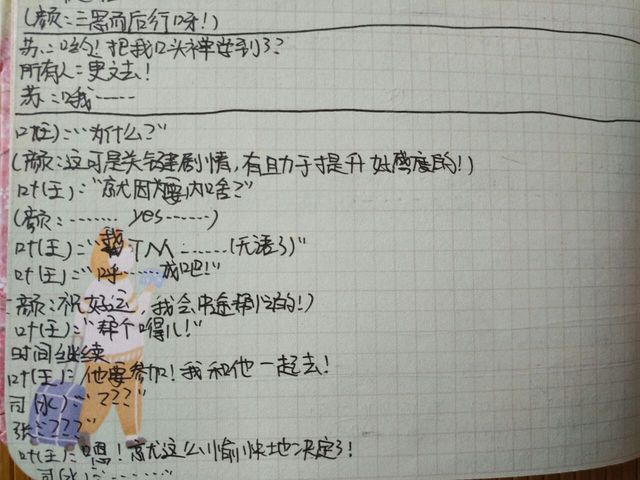 (颜:三思而后行呀!)
苏:哈!把我口头禅学到了?
所有人:更文去!
苏:哦……
叶(王):"为什么?"
(颜:这可是关键剧情,有助于提升好感度的!)
叶(王):"就因为要内啥?"
(颜:…… yes……)
叶(王):"我TM……(无语了)"
叶(王):"呼……成吧!"
(颜:祝好运,我会中途帮忙的!)
叶(王):"帮个嘚儿!"
时间继续
叶(王):他要参加!我和他一起去!
司(水):"???"
张:"???"
叶(王):"嗯!就这么愉快地决定了!
司(水):"……"